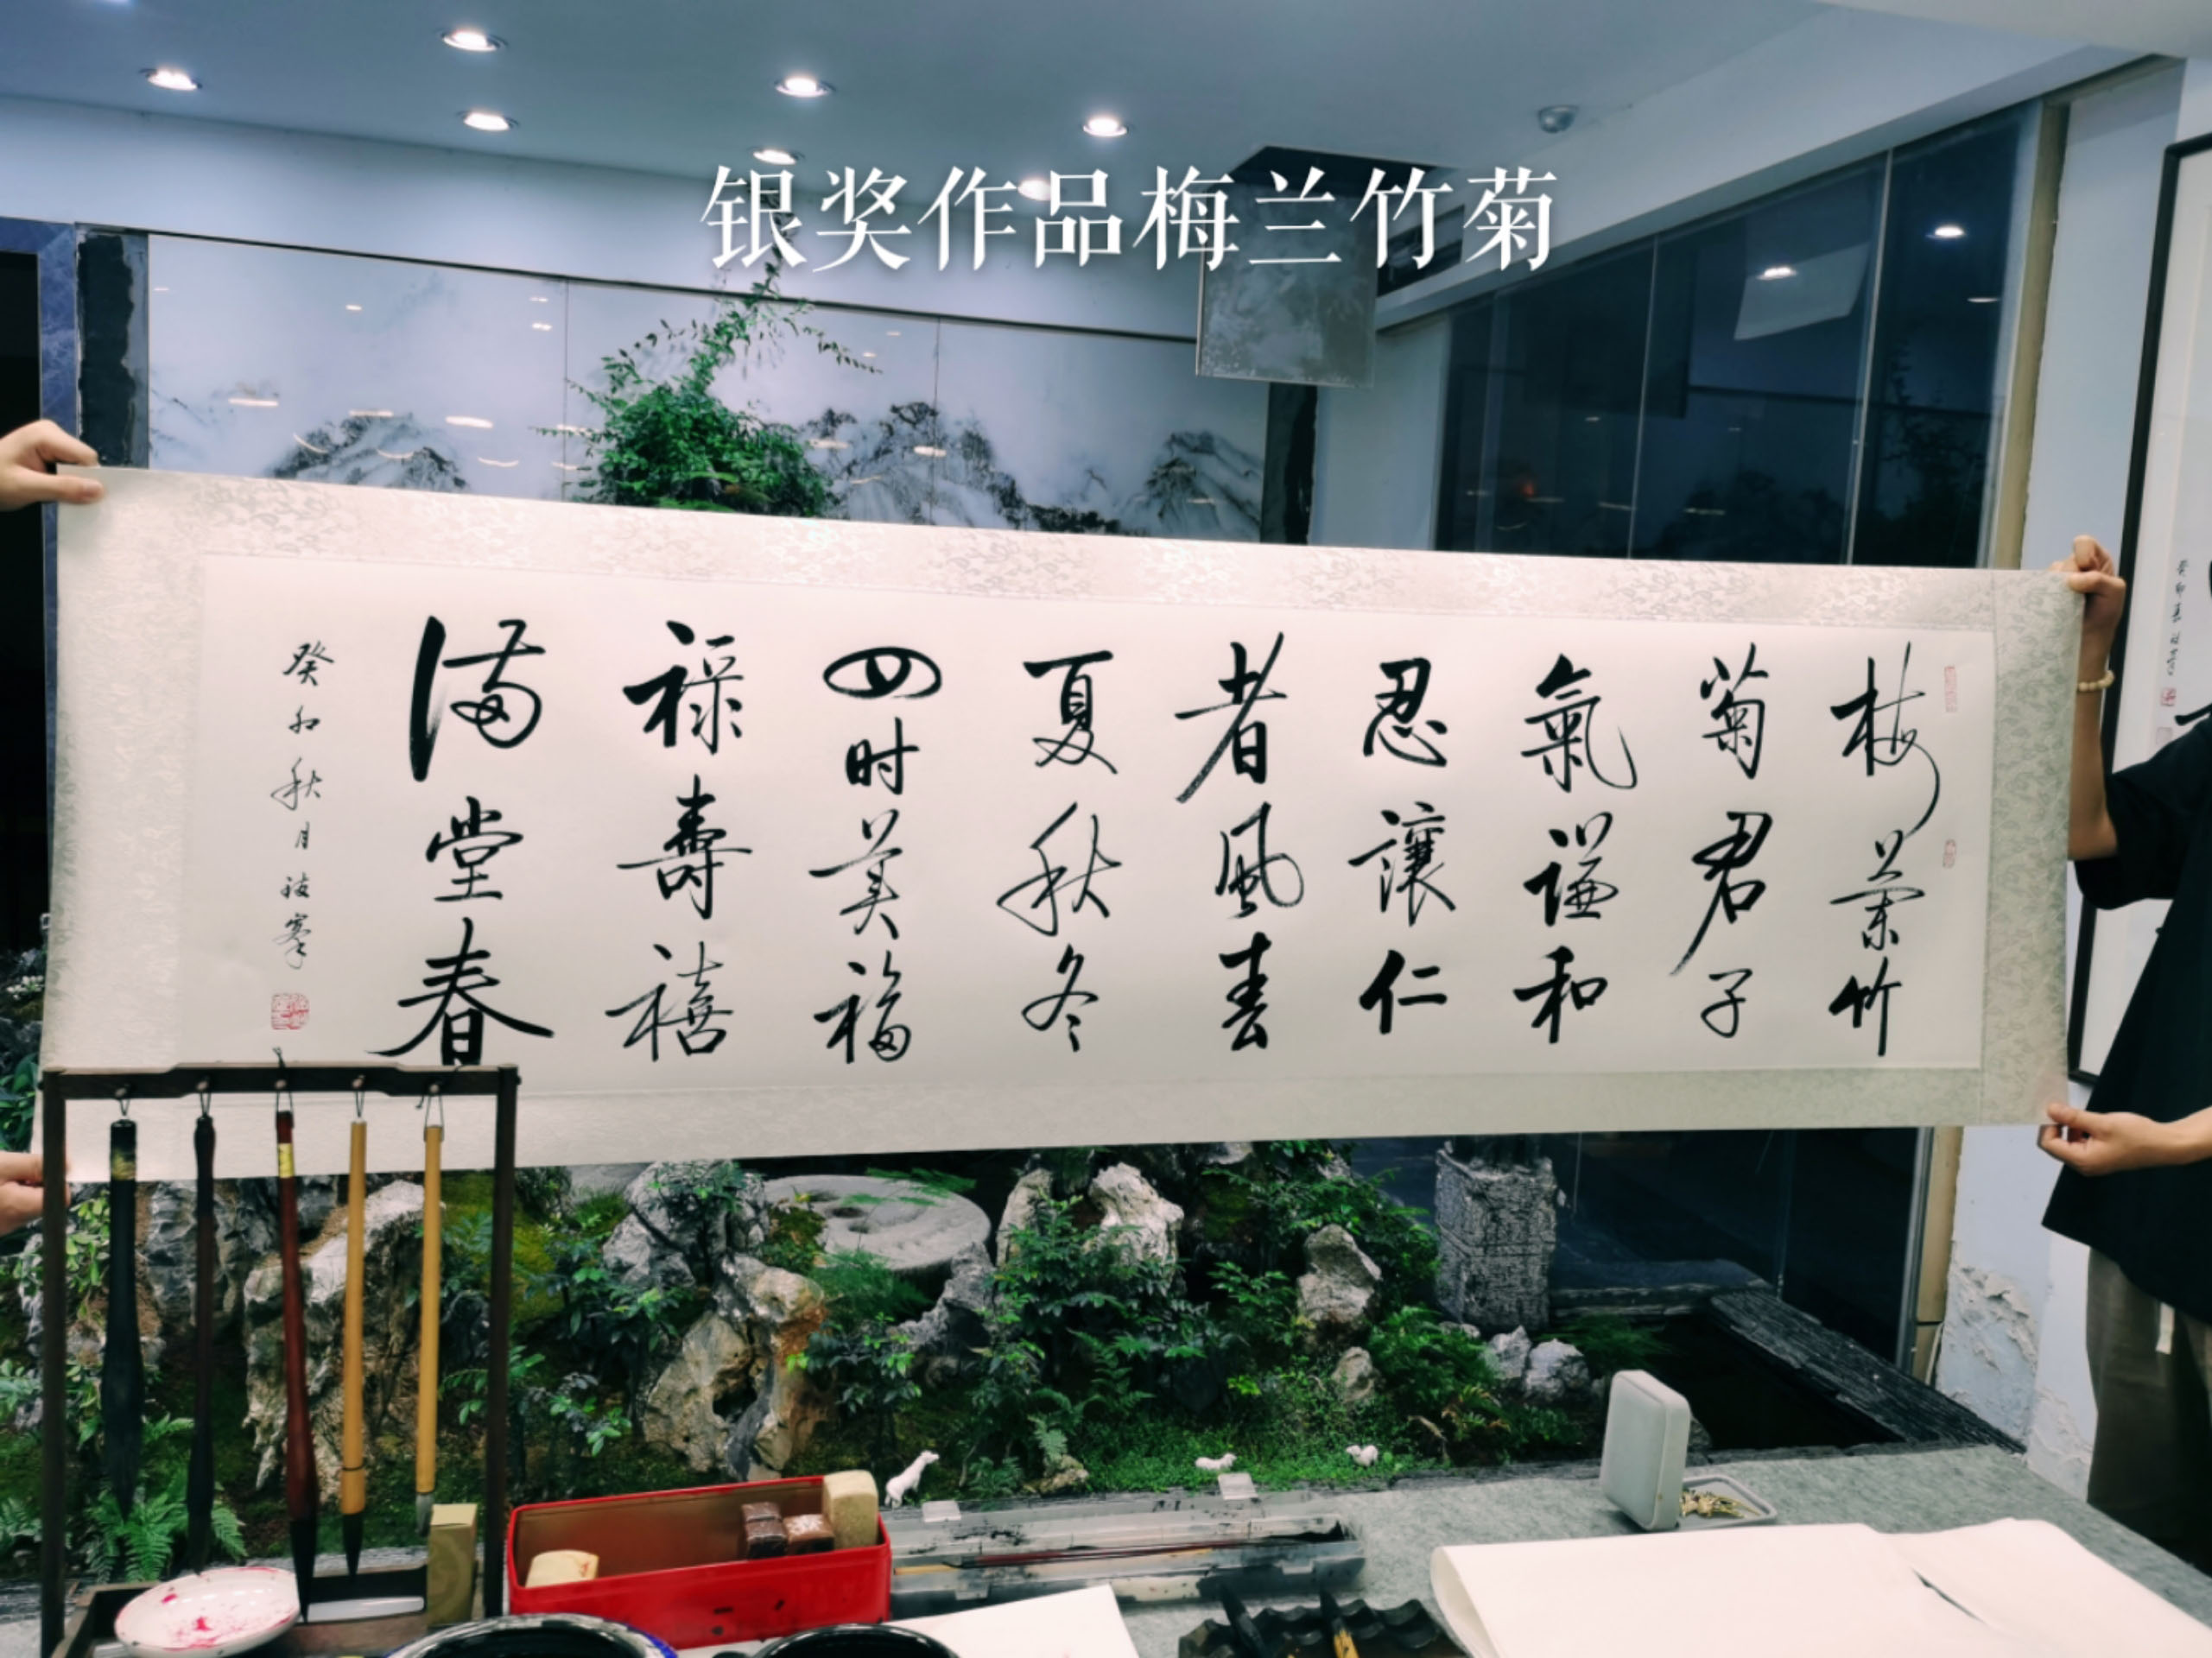 银奖作品梅兰竹菊
梅蘭竹
菊君子
氣谦和
忍讓仁
者風春
夏秋冬
四时美福
禄壽禧
满堂春
癸卯秋月